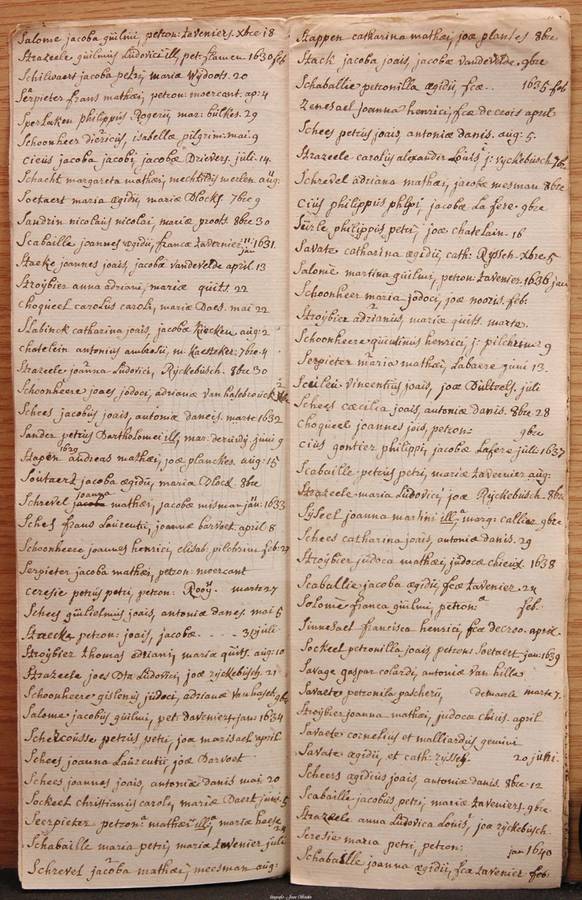 Salome jacoba guilmi, petron: taveniers. xbre 18
Strazeele guilmus Ludovici ill, pet: flamen. 1630 feb
Schilvaert jacoba petri, mariæ Wydoots. 20
Serpieter frans mathæi, petron: moercant. ap: 4
Sperlaeken philippus Rogerij mar: bulkes. 29
Schoonheer diericus, isabellæ pilgrim: mai. 9
Cieus jacoba jacobi jacobæ Drievers. juli. 14
Schacht margareta mathæi, mechtildis merlen. aug:
Soetaert maria ægidij, mariæ Dlocks. 7bre 9
Sandrin nicolaus nicolai, mariæ proots. 8bre 30
Scabaille joannes ægidij, francæ tavernier: 11: 1631. jan
Staeke joannes joais, jacobæ vandevelde april 13
Stroijbier anna adriani, mariæ guits. 22
Choqueel carolus caroli, mariæ Daes. mai 22
Slabinck catharina joais, jacobæ kiecken. aug: 2
Chatelein antonius ambrosii, m: kaetteker. 7bre. 4
Strazeele joanna Ludovici, Rijckebusch. 8bre 30
Schoonheere joaes jodoci, adrianæ van hasebrouck
Schees jacobus joais, antoniæ daneis. marte 1632
Sander petrus Bartholomei ill, mar: deruidij. juni 9
Stapen 1629 andreas mathæi, joæ planckes. aug: 15
Soutaert jacoba ægidij, mariæ Dlock 8bre
Schrevel joanna jacoba mathæi, jacobæ mesman jan: 1633
Schees frans Laurentii, joannæ barvoet. april 8
Schoonheere joannes henrici, elisab: pilchrim feb:
Serpieter jacoba mathæi, petron: moercant
Ceresie petrus petri, petron: Rooij. marte 27
Schees guilielmus joais, antoniæ danes. mai 5
Straecke petron: joais, jacobæ . . . . 31 juli
Stroijbier thomas adriani, mariæ guits. aug: 10
Strazeele joes Bta Ludovici, joæ rijckebusch. 21
Schoonheere gislenus judoci, adrianæ van hasbr. 9br
Salome jacobus guilmi, pet: daveniers. jan: 1634
Schercousse petrus petri, joæ marisael april
Schees joanna Laurentii, joæ Barvoet
Schees joannes joais, antoniæ danis mai 20
Sockeel christianus caroli, mariæ Daert juni: 5
Seerpieter petrona mathæi ill, mariæ hoese
Schabaille maria petri, mariæ tavernier, juli 24
Schrevel jacoba mathæi, meesman aug:
Stappen catharina mathæi, joæ planckes 8bre
Stack jacoba joais, jacobæ vandevelde. 9bre
Schaballie petronilla ægidii, fcæ . . 1635 feb
Zenesael joanna henrici, fcæ decrois april
Schees petrus joais, antoniæ danis. aug: 5.
Strazeele carolus alexander Louis, j: rijckebusch. 7b
Schrevel adriana mathæi, jacobæ mesman. 8bre
Cius philippus phlpi, jacobæ La fere. 9bre
Surle philippus petri, joæ chatelain. 16
Savate catharina ægidii, cath: Rysch. xbre. 5
Salome martina guilmi, petron: tavenier. 1636 jan
Schoonheer maria jodoci, joæ nooris. feb:
Stroijbier adrianus, mariæ guits. marte.
Schoonheere quidinus henrici, j: pilchrim 9
Serpieter maria mathæi, Labaere juni 13.
Sceilei vincentius joais, joæ Bulteels. juli
Schees cæcilia joais, antoniæ danis. 8bre 28
Choqueel joannes jois, petron: 9bre
Cius gontier philippi, jacobæ Lafere. juli. 1637
Scabaille petrus petri, mariæ tavernier aug:
Strazeele maria Ludovici, joæ Rijckebusch. 8bre
Sijsoet joanna martini ill, marg: calliez. 9bre.
Schees catharina joais, antoniæ danis. 29
Stroijbier judoca mathæi, judocæ chieux. 1638
Scaballie jacoba ægidij, fcæ tavenier. 24
Solome franca guilmi, petrona feb:
Sinnesael francisca henrici, fcæ decroo. april.
Sockeel petronilla joais, petrons Soetaert jan: 1639
Savage gaspar colardi, antoniæ van hille
Savaete petronila pascherii, demarle marte 7.
Stroijbier joanna mathæi, judoca chius. april
Savaete cornelius et malliardus gemini
Savate ægidii, et cath: rijssch. 20 julii.
Scheers ægidius joais, antoniæ danis. 8bre. 12
Scabaille jacobus petri, mariæ taveniers. 9bre.
Strazeele anna Ludovica Louis, joæ rijckebusch.
Seresie maria petri, petron: jan 1640
Schabaille joanna ægidii, fcæ tavenier. feb: